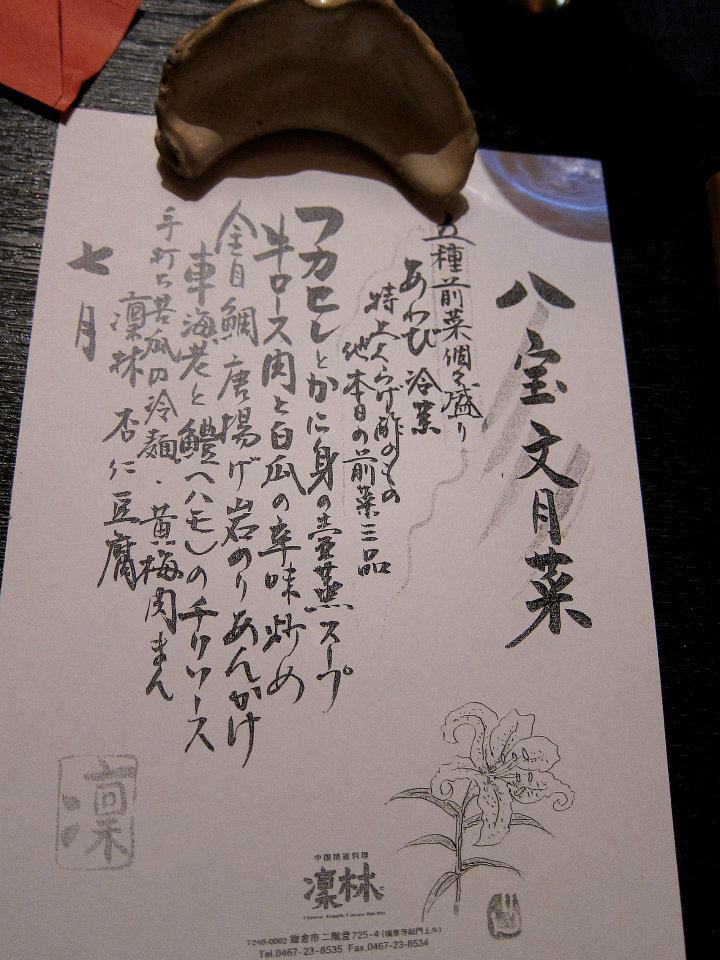 八宝文月菜
五種前菜個々盛り
あわび 冷菜
特上くらげ酢のもの
他本日の前菜三品
フカヒレとかに身の壷蒸スープ
牛ロース肉と白瓜の辛味炒め
金目鯛唐揚げ岩のりあんかけ
車海老と鱧(ハモ)のチリソース
手打ち苦瓜の冷麺・黄梅肉まん
凛林 杏仁豆腐
七月
凛
中国精進料理
凛林
〒248-0002 鎌倉市二階堂725-4(瑞泉寺総門上ル)
Tel.0467-23-8535 Fax.0467-23-8534